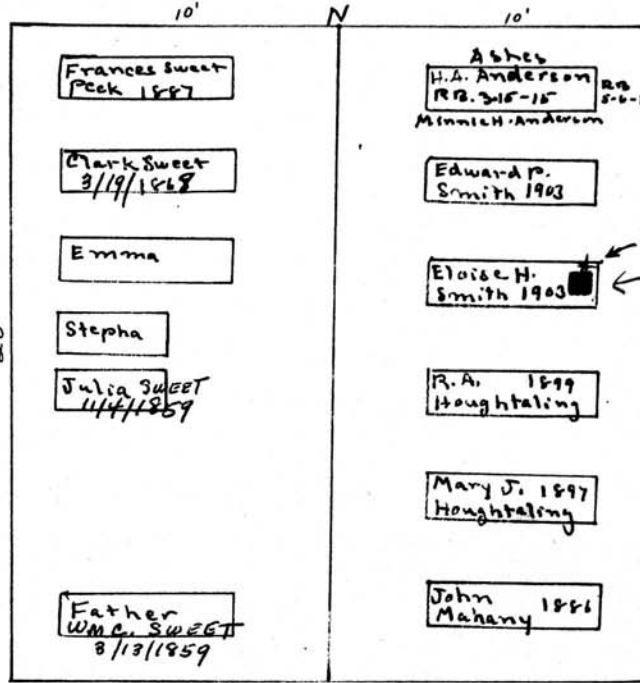 10' N 10'
Frances Sweet
Peek 1887
Clark Sweet
3/19/1868
Emma
Stepha
Julia SWEET
11/4/1859
Father
WM C. SWEET
3/13/1859
Ashes
H.A. Anderson
RB. 3-15-15
RB
Minnie H. Anderson
Edward P.
Smith 1903
Eloise H.
Smith 1903
R.A. 1899
Houghtaling
Mary J. 1897
Houghtaling
John 1886
Mahany